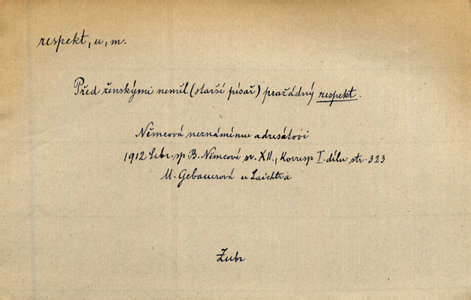 respekt, u, m.
Před ženskými neměl (starší písař) pražádný respekt.
Němcová neznámému adresátovi
1912 Sebr. sp B. Němcové sv. XII., Koresp I. dílu str. 323
M. Gebauerová u Laichtra
Zubr